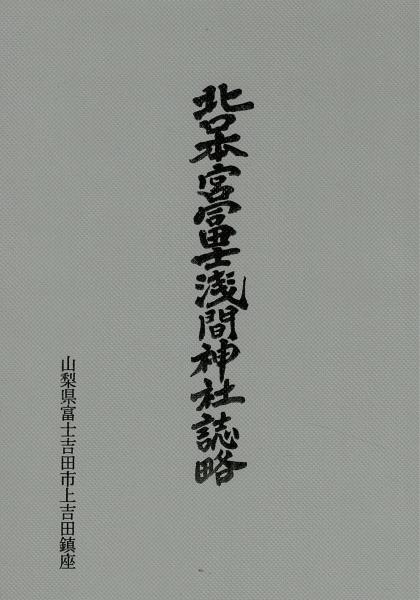 北口本宮冨士淺間神社誌略
山梨県富士吉田市上吉田鎮座